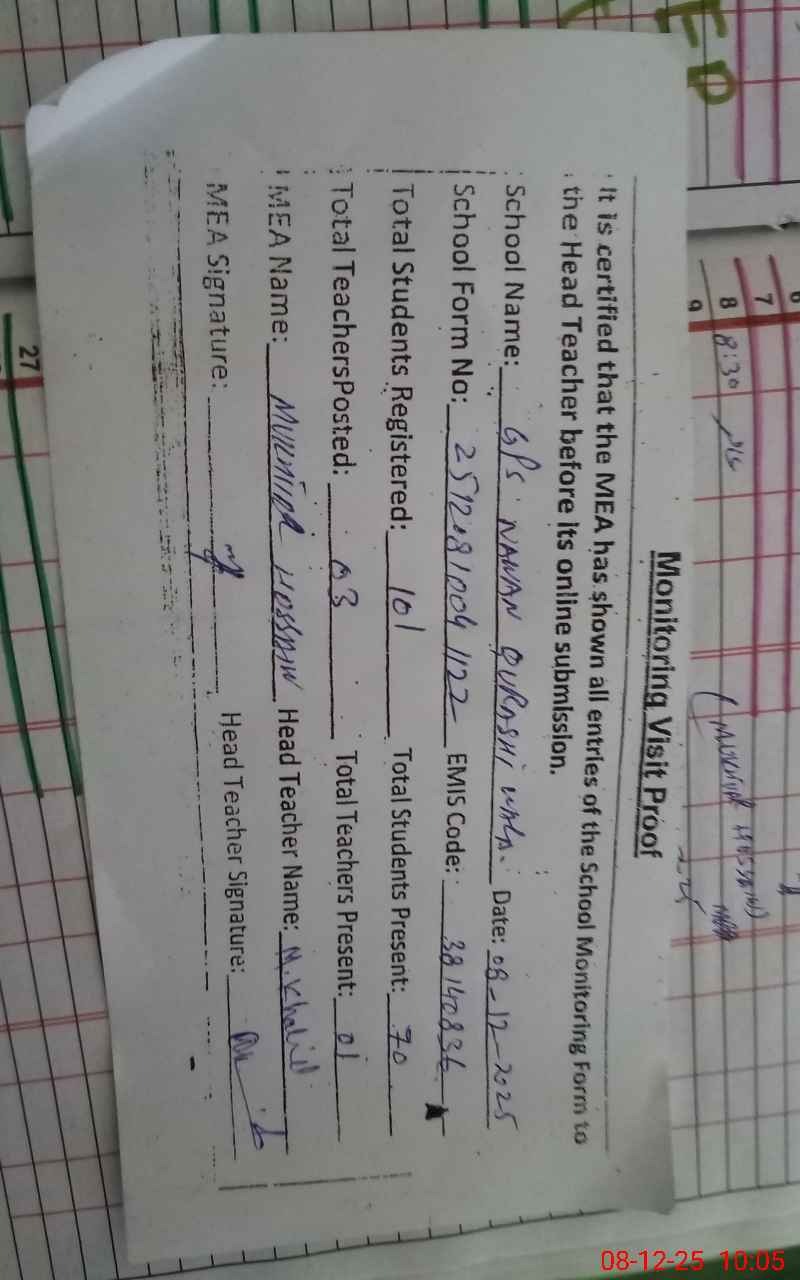 Monitoring Visit Proof
It is certified that the MEA has shown all entries of the School Monitoring Form to
the Head Teacher before its online submission.
School Name: GPS NAWAN QURASHI WALA. Date: 08-12-2025
School Form No: EMIS Code: 38140836
Total Students Registered: 101 Total Students Present: 70
Total TeachersPosted: 03 Total Teachers Present: 01
MEA Name: HOSSAIN Head Teacher Name: M. Khalid
MEA Signature: Head Teacher Signature:
7
8 8:30
9
27
08-12-25 10:05